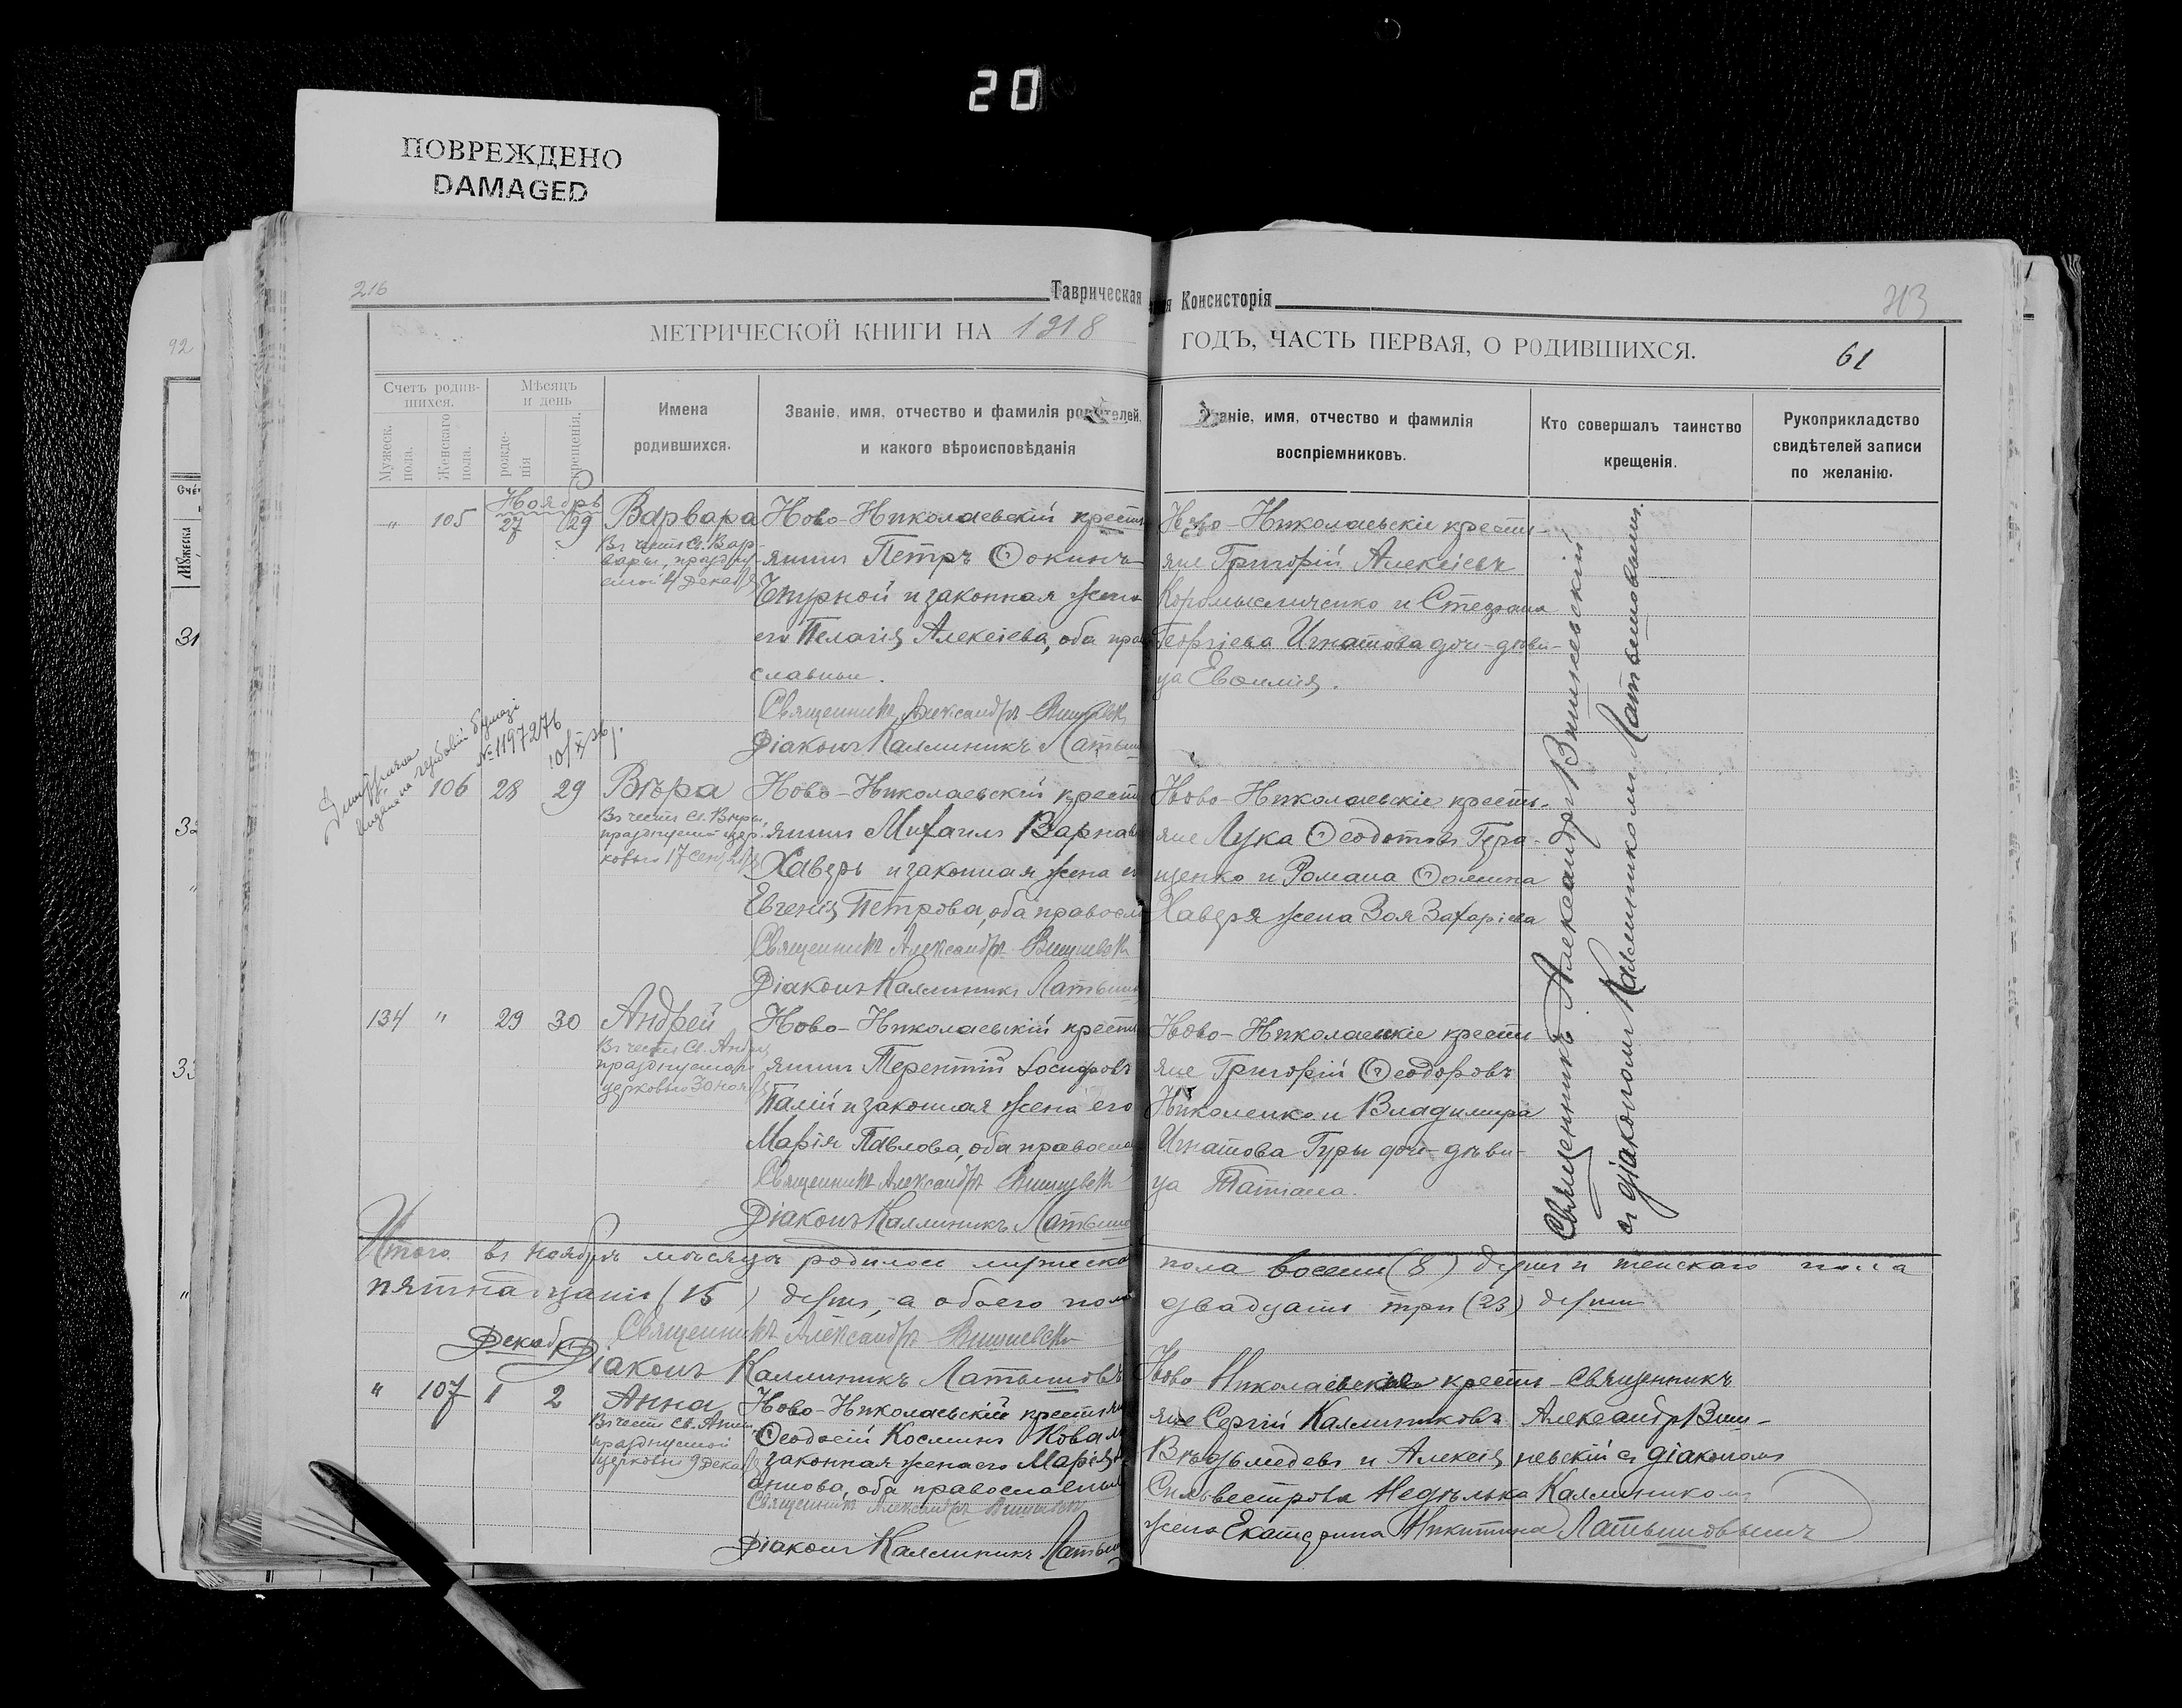 20
ПОВРЕЖДЕНО
DAMAGED
216
Таврическая
Консисторія
213
МЕТРИЧЕСКОЙ КНИГИ НА 1918
ГОДЪ, ЧАСТЬ ПЕРВАЯ, О РОДИВШИХСЯ.
61
92
Счетъ родив-
шихся.
Мужеск. пола.
Женскаго пола.
Мѣсяцъ
и день
рожде-
нія
крещенія.
Имена
родившихся.
Званіе, имя, отчество и фамилія родителей,
и какого вѣроисповѣданія
Званіе, имя, отчество и фамилія
воспріемниковъ.
Кто совершалъ таинство
крещенія.
Рукоприкладство
свидѣтелей записи
по желанію.
Ноябрь
" 105 27 29 Варвара
Въ честь Св. Вар-
вары, праздну-
емой 4 Декабря
Ново-Николаевскій крестья
янинъ Петръ Ѳокинъ
и законная жена
его Пелагія Алексіева, оба пра
славные.
Священникъ Александръ Вишневск
Діаконъ Каллиникъ Латыш
Ново-Николаевскіе крестья-
яне Григорій Алексіевъ
Коромысличенко и Стефана
Георгіева Игнатова дочь-дѣви-
ца Евѳимія.
Священникъ Александръ Вишневскій
съ діакономъ Каллиникомъ Латышовымъ.
№ 1197276
10/X 36 г.
106 28 29 Вѣра
Въ честь Св. Вѣры,
празднуемой цер-
ковью 17 Сентября
Ново-Николаевскій крестья
янинъ Михаилъ Варнав
Хаверь и законная жена ег
Евгенія Петрова, оба правосл
Священникъ Александръ Вишневск
Діаконъ Каллиникъ Латыш
Ново-Николаевскіе кресть-
яне Лука Ѳеодотовъ Гера-
щенко и Романа Ѳомина
Хаверя жена Зоя Захаріева
134 " 29 30 Андрей
Въ честь Св. Андрея
празднуемаго
церковью 30 ноября
Ново-Николаевскій крестья
янинъ Терентій Іосифовъ
Палій и законная жена его
Марія Павлова, оба правосла
Священникъ Александръ Вишневск
Діаконъ Каллиникъ Латышо
Ново-Николаевскіе кресть
яне Григорій Ѳеодоровъ
Николенко и Владимира
Игнатова Гуры дочь-дѣви-
ца Татіана.
Итого въ ноябрѣ мѣсяцѣ родилось мужеско
пола восемь (8) душъ и женскаго пола
пятнадцать (15) душъ, а обоего пола
двадцать три (23) души
Священникъ Александръ Вишневск
Діаконъ Каллиникъ Латышовъ
Декабрь
" 107 1 2 Анна
Въ честь Св. Анны
празднуемой
церковью 9 Декабря
Ново-Николаевскій крестьян
Ѳеодосій Косминъ Ковал
законная жена его Марія
оба православные
Священникъ Александръ Вишневск
Діаконъ Каллиникъ Латыш
Ново Николаевскіе кресть-
яне Сергій Каллиниковъ
Вѣдьмедевъ и Алексія
Сильвестрова Недѣлька
жена Екатерина Никитина
Священникъ
Александръ Виш-
невскій съ діакономъ
Каллиникомъ
Латышовымъ